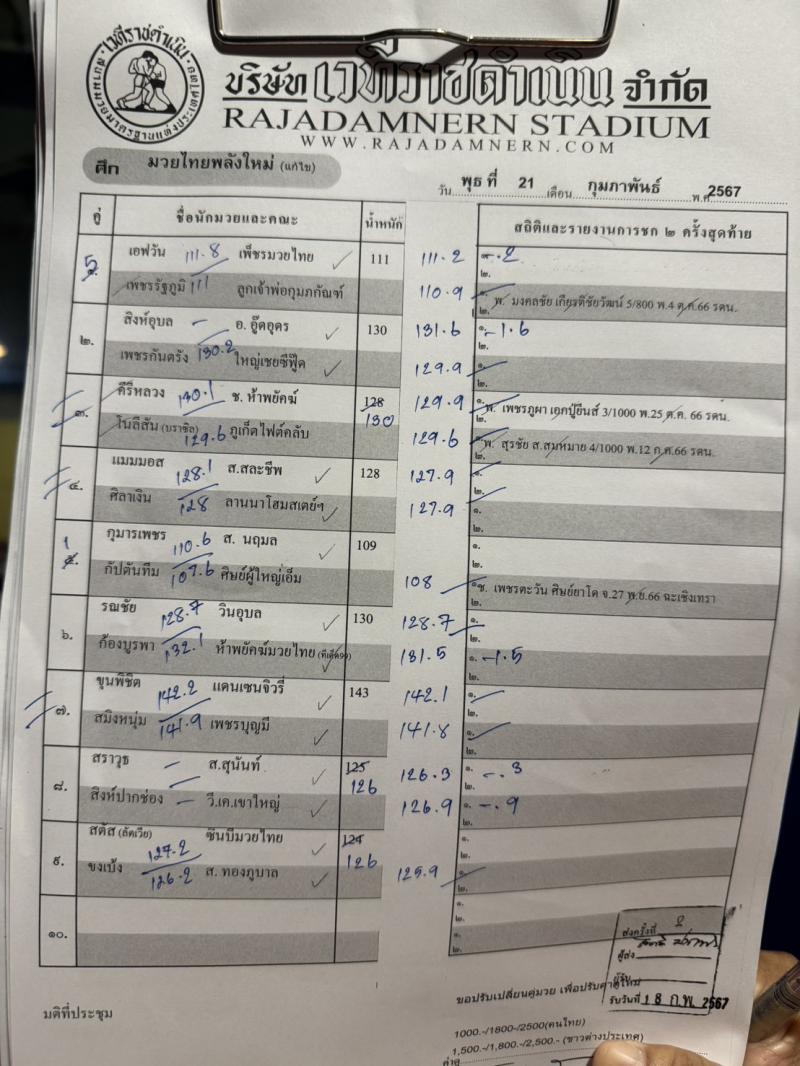 เวทีราชดำเนิน
สนามมวยมาตรฐานแห่งประเทศไทย
บริษัท เวทีราชดำเนิน จำกัด
RAJADAMNERN STADIUM
WWW.RAJADAMNERN.COM
ศึก มวยไทยพลังใหม่ (แก้ไข)
วัน พุธ ที่ 21 เดือน กุมภาพันธ์ พ.ศ. 2567
คู่ ชื่อนักมวยและคณะ น้ำหนัก สถิติและรายงานการชก ๒ ครั้งสุดท้าย
5 เอฟวัน 111.8 เพ็ชรมวยไทย 111 111.2 ๑. -.2
๒.
เพชรรัฐภูมิ 111 ลูกเจ้าพ่อกุมภกัณฑ์ 110.9 ๑. พ. มงคลชัย เกียรติชัยวัฒน์ 5/800 พ.4 ต.ค.66 รดน.
๒.
๒. สิงห์อุบล - อ. อู๊ดอุดร 130 131.6 ๑. -1.6
๒.
เพชรกันตรัง 130.2 ใหญ่เชยซีฟู๊ด 129.9 ๑.
๒.
๓. คีรีหลวง 130.1 ช. ห้าพยัคฆ์ 128 130 129.9 ๑. พ. เพชรภูผา เอกปู่ยีนส์ 3/1000 พ.25 ต.ค. 66 รดน.
๒.
โนลีสัน (บราซิล) 129.6 ภูเก็ตไฟต์คลับ 129.6 ๑. พ. สุรชัย ส.สมหมาย 4/1000 พ.12 ก.ค.66 รดน.
๒.
๔. แมมมอส 128.1 ส.สละชีพ 128 127.9 ๑.
๒.
ศิลาเงิน 128 ลานนาโฮมสเตย์ฯ 127.9 ๑.
๒.
1 ๕. กุมารเพชร 110.6 ส. นฤมล 109 ๑.
๒.
กัปตันทีม 107.6 ศิษย์ผู้ใหญ่เอ็ม 108 ๑. ช. เพชรตะวัน ศิษย์ยาโด จ.27 พ.ย.66 ฉะเชิงเทรา
๒.
๖. รณชัย 128.7 วินอุบล 130 128.7 ๑.
๒.
ก้องบูรพา 132.1 ห้าพยัคฆ์มวยไทย (ทีเด็ด99) 131.5 ๑. -1.5
๒.
๗. ขุนพิชิต 142.2 แดนเซนจิวรี่ 143 142.1 ๑.
๒.
สมิงหนุ่ม 141.9 เพชรบุญมี 141.8 ๑.
๒.
๘. สราวุธ - ส.สุนันท์ 125 126 126.3 ๑. -.3
๒.
สิงห์ปากช่อง - วี.เค.เขาใหญ่ 126.9 ๑. -.9
๒.
๙. สตัส (ลัตเวีย) 127.2 ซินบีมวยไทย 124 126 ๑.
๒.
ขงเบ้ง 126.2 ส. ทองภูบาล 125.9 ๑.
๒.
๑๐. ๑.
๒.
๑.
๒.
ส่งครั้งที่ 2
ผู้ส่ง
ผู้รับ
รับวันที่ 18 ก.พ. 2567
มติที่ประชุม
ขอปรับเปลี่ยนคู่มวย เพื่อปรับค่าตัวใหม่
1000.-/1800-/2500(คนไทย)
1,500.-/1,800.-/2,500.- (ชาวต่างประเทศ)